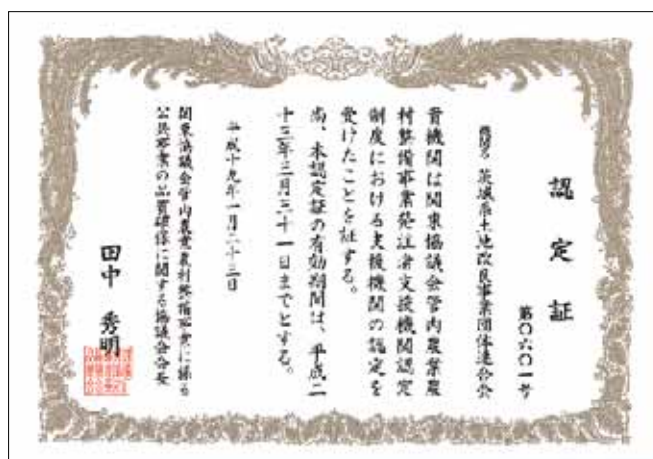 認定証
第〇六〇一号
機関名 茨城県土地改良事業団体連合会
貴機関は関東協議会管内農業農
村整備事業発注者支援機関認定
制度における支援機関の認定を
受けたことを証する。
尚、本認定証の有効期間は、平成二
十三年三月三十一日までとする。
平成十九年一月二十三日
関東協議会管内農業農村整備事業に係る
公共事業の品質確保に関する協議会会長
田中 秀明